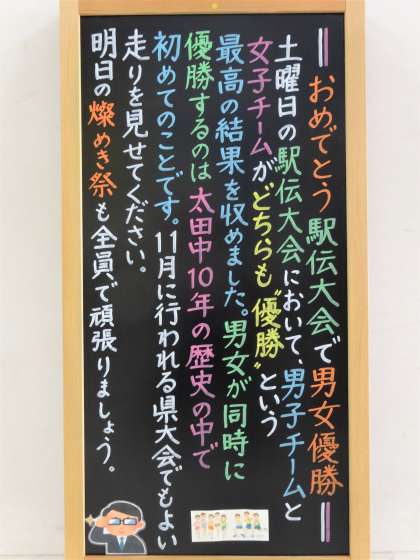 ‖おめでとう 駅伝大会で男女優勝‖
土曜日の駅伝大会において、男子チームと
女子チームがどちらも“優勝”という
最高の結果を収めました。男女が同時に
優勝するのは太田中10年の歴史の中で
初めてのことです。11月に行われる県大会でもよい
走りを見せてください。
明日の燦めき祭も全員で頑張りましょう。